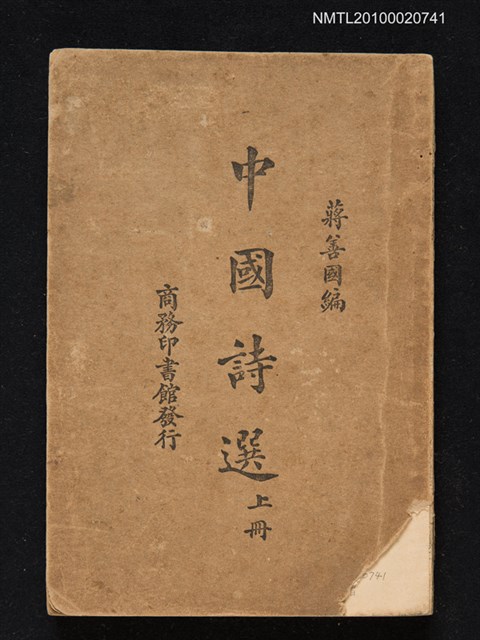 NMTL20100020741
蔣善國編
中國詩選上冊
商務印書館發行
0741